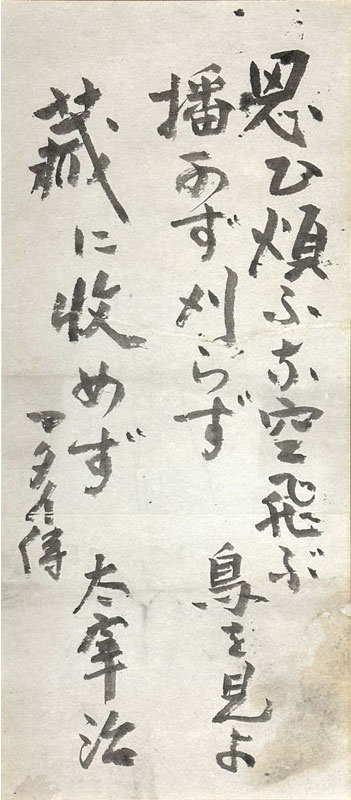 思ひ煩ふな空飛ぶ
鳥を見よ
播かず刈らず
藏に收めず
マタイ傳
太宰治